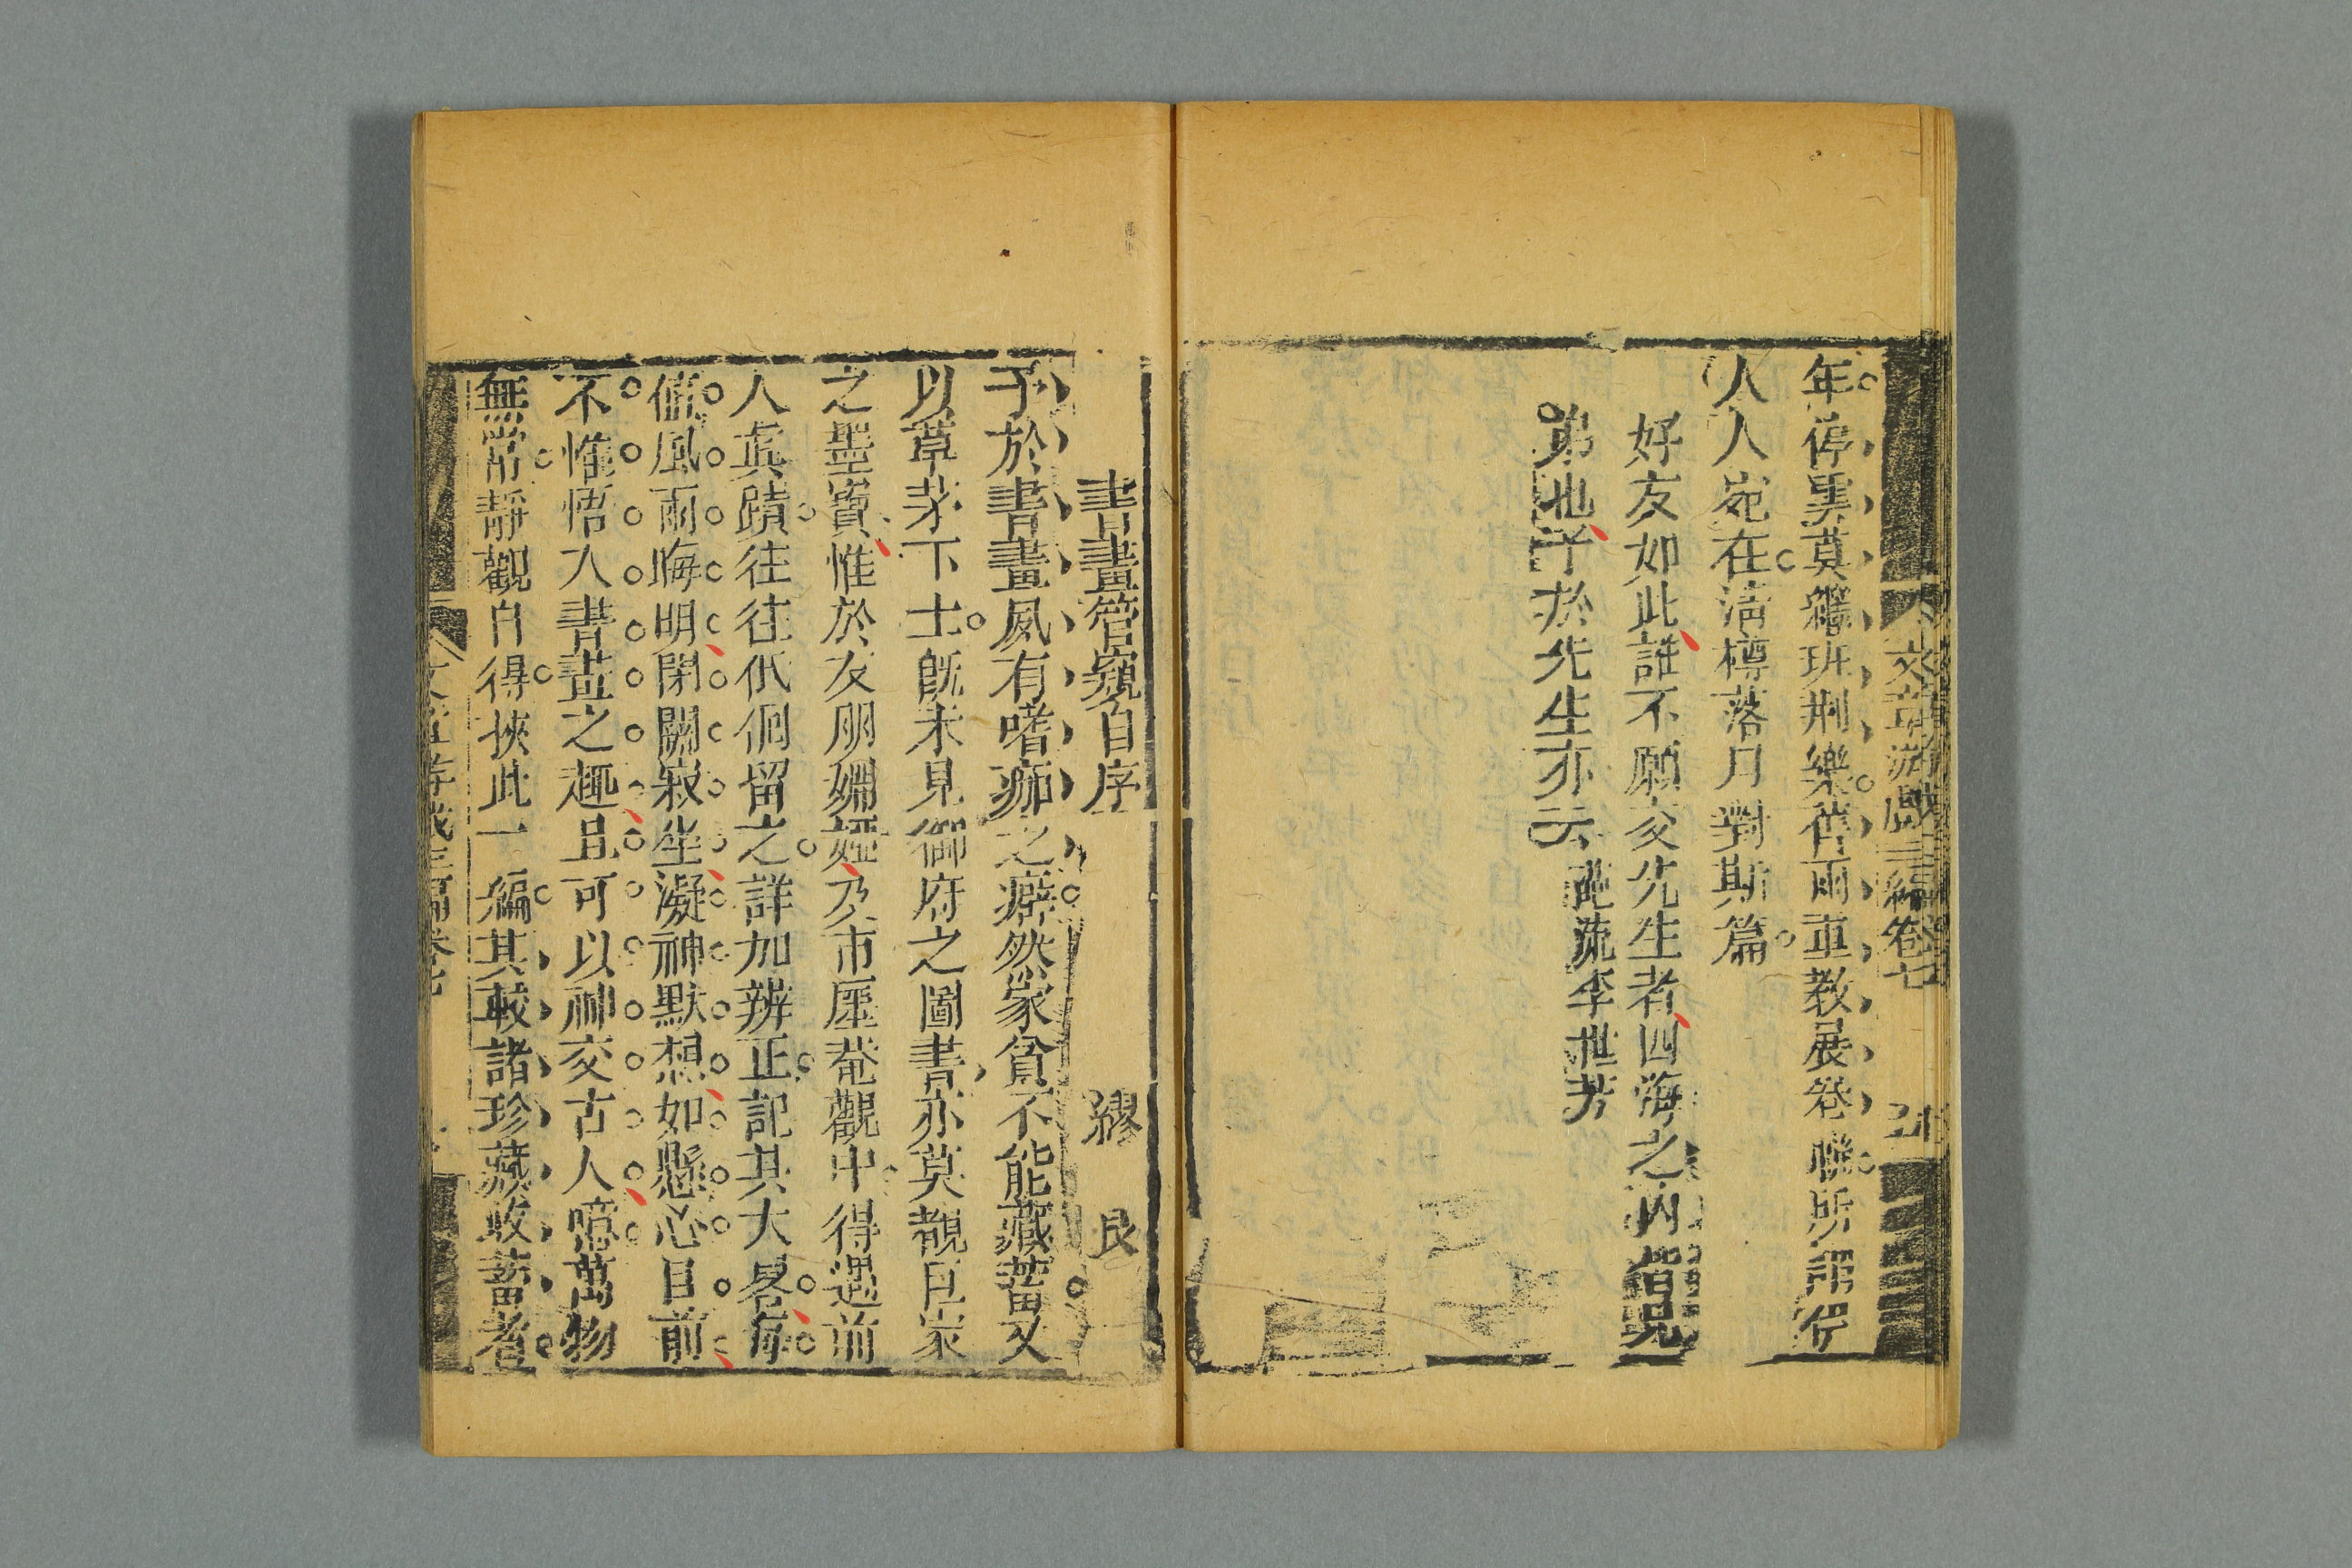 文章游戲三編卷七
年停雲莫緩班荆樂舊雨重教展卷聯所謂發
人人宛在淸樽落月對斯篇
好友如此誰不願交先生者四海之內皆兄
弟也予於先生亦云 李世芳
書畫管窺自序 繆艮
予於書畫夙有嗜痂之癖然家貧不能藏蓄又
以草茅下士既未見御府之圖書亦莫覩巨家
之墨寳惟於友朋婣婭及市厘菴觀中得遇前
人眞蹟往往低佪留之詳加辨正記其大畧每
値風雨晦明閉關寂坐凝神默想如懸心目前
不惟悟入書畫之趣且可以神交古人噫萬物
無常靜觀自得挾此一編其較諸珍藏收蓄者
文章游戲三編卷七